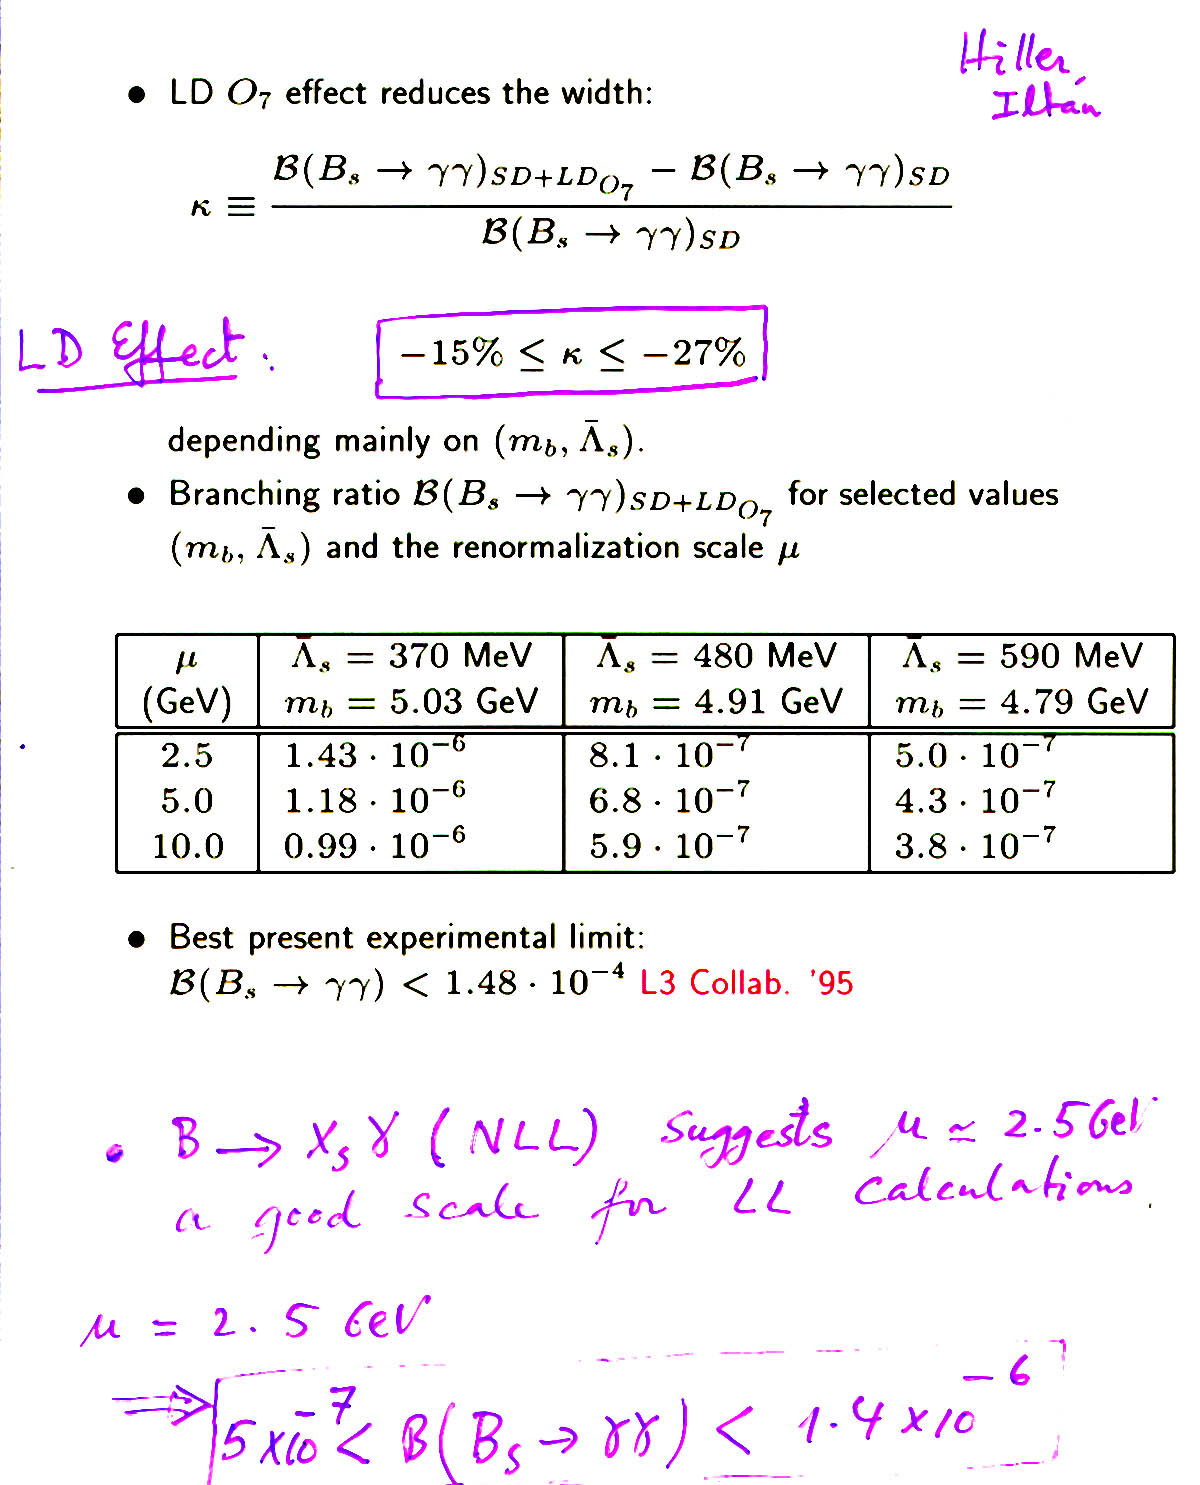 Hiller,
Iltan
• LD O₇ effect reduces the width:
κ ≡ (𝓑(Bₛ → γγ)_{SD+LD_{O₇}} − 𝓑(Bₛ → γγ)_{SD}) / 𝓑(Bₛ → γγ)_{SD}
LD Effect:
−15% ≤ κ ≤ −27%
depending mainly on (m_b, Λ̄ₛ).
• Branching ratio 𝓑(Bₛ → γγ)_{SD+LD_{O₇}} for selected values
(m_b, Λ̄ₛ) and the renormalization scale μ
μ Λ̄ₛ = 370 MeV Λ̄ₛ = 480 MeV Λ̄ₛ = 590 MeV
(GeV) m_b = 5.03 GeV m_b = 4.91 GeV m_b = 4.79 GeV
2.5 1.43 · 10⁻⁶ 8.1 · 10⁻⁷ 5.0 · 10⁻⁷
5.0 1.18 · 10⁻⁶ 6.8 · 10⁻⁷ 4.3 · 10⁻⁷
10.0 0.99 · 10⁻⁶ 5.9 · 10⁻⁷ 3.8 · 10⁻⁷
• Best present experimental limit:
𝓑(Bₛ → γγ) < 1.48 · 10⁻⁴ L3 Collab. '95
• B → Xₛ γ (NLL) suggests μ ≃ 2.5 GeV
a good scale for LL calculations.
μ = 2.5 GeV
⇒ 5 × 10⁻⁷ < B(Bₛ → γγ) < 1.4 × 10⁻⁶